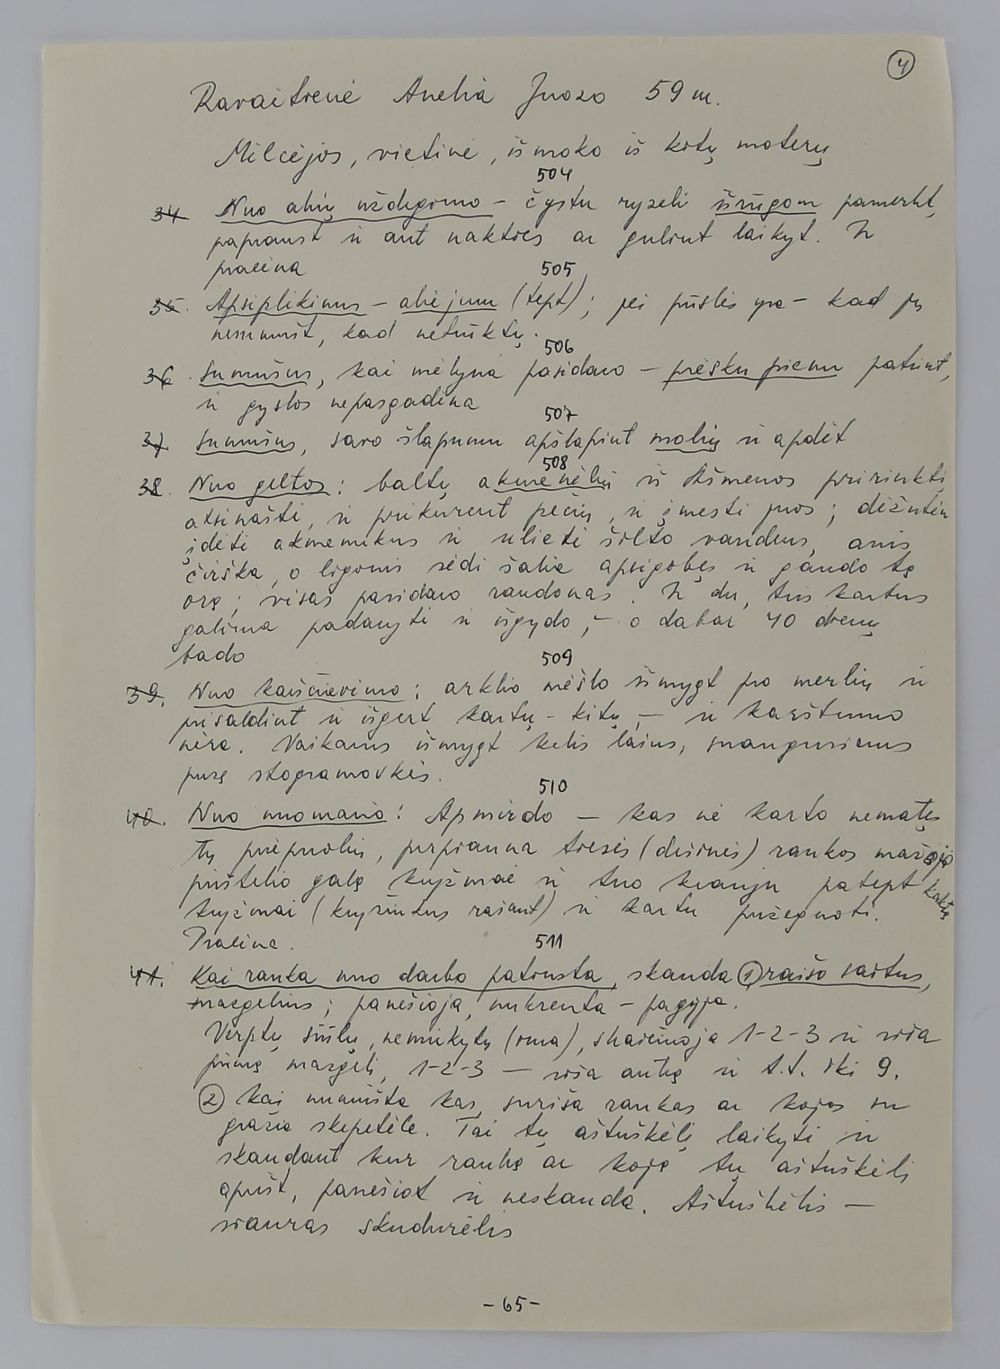 4
Ravaitienė Anelia Juozo 59 m.
Milcėjos, vietinė, išmoko iš kitų moterų
504
34 Nuo akių uždegimo – čystu ryzeli išrūgom pamerkt,
papraust ir ant nakties ar gulint laikyt. Ir
praeina
505
35. Apsiplikinus – aliejum (tept); jei pūslės yra – kad jų
nesumušt, kad netrūktų.
506
36. Sumušus, kai mėlyna pasidaro – prėsku pienu patrint,
ir gyslos nepasgadina
507
37 Sumušus, savo šlapumu apšlapint molių ir apdėt
508
38. Nuo geltos: baltų akmenėlių iš Ašmenos pririnkti,
atsinašti, ir prikurent pečių, ir įmesti juos; dėžutėn
įdėti akmenukus ir ulieti šilto vandens, anis
čirška, o ligonis sėdi šalia apsigobęs ir gaudo tą
orą; visas pasidaro raudonas. Ir du, tris kartus
galima padaryti ir išgydo, – o dabar 40 dienų
bado
509
39. Nuo karščiavimo; arklio mėšlo išmygt po merlių ir
prisaldint ir išgert kartų – kitų, – ir karštumo
nėra. Vaikams išmygt kelis lašus, suaugusiems
pusę stogramovkės.
510
40. Nuo nuomario: Apmirdo – kas nė karto nematęs
tų priepuolių, perpjauna tiesės (dešinės) rankos mažojo
pirštelio galą kryžmai ir tuo krauju patept kaktą
kryžmai (kryžiukus rašant) ir kartu peržegnoti.
Praeina.
511
41. Kai ranka nuo darbo patinsta, skauda ① raišo saitus,
mazgelius; panešioja, nukrenta – pagyja.
Verptų siūlų, nemirkytų (ima), skaičiuoja 1-2-3 ir riša
pirmą mazgelį, 1-2-3 – riša antrą ir t.t. iki 9.
② kai numiršta kas, suriša rankas ar kojas su
gražia skepetėle. Tai tų aštuškėlį laikyti ir
skaudant kur ranką ar koją tų aštuškėlį
aprišt, panešiot ir neskauda. Aštuškėlis –
siauras skudurėlis
-65-